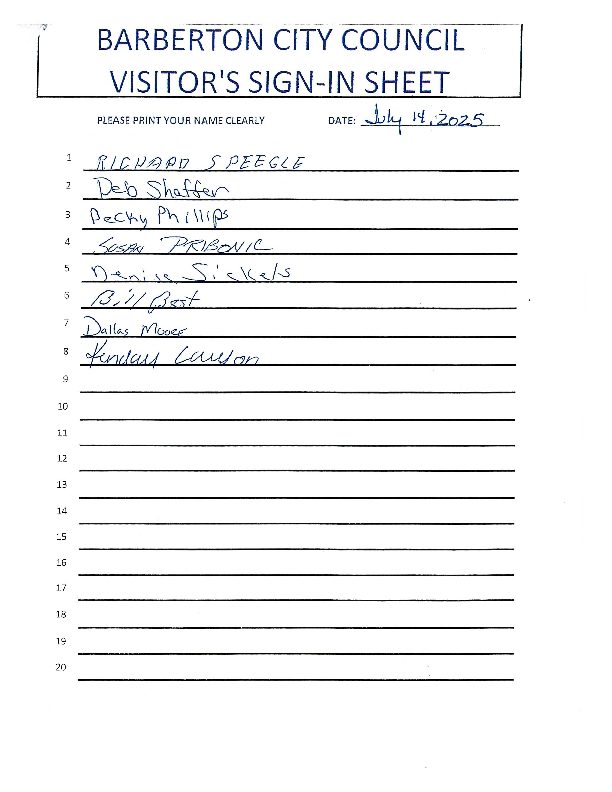 BARBERTON CITY COUNCIL
VISITOR'S SIGN-IN SHEET
PLEASE PRINT YOUR NAME CLEARLY DATE: July 14, 2025
1 RICHARD SPEEGLE
2 Deb Shaffer
3 Becky Phillips
4 SUSAN PRIBONIC
5 Denise Sickels
6 Bill Best
7 Dallas Moore
8 Kendall Lawson
9
10
11
12
13
14
15
16
17
18
19
20